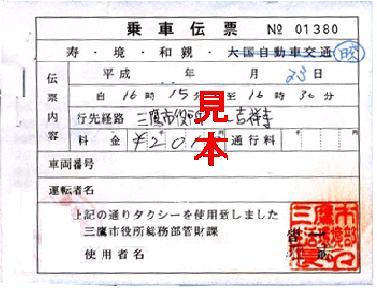 乗車伝票 № 01380
寿・境・和親・大国自動車交通
伝票内容
平成 年 月 23日
自 16時15分 至 16時30分
行先経路 三鷹市役所 吉祥寺
料金 ¥20 通行料
車両番号
運転者名
上記の通りタクシーを使用致しました
三鷹市役所総務部管財課
使用者名
見本